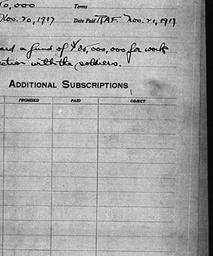 0,000 Terms
Nov. 20, 1917 Date Paid RAF. Nov. 21, 1917
a fund of $ ,000,000 for work
with the soldiers.
ADDITIONAL SUBSCRIPTIONS
PROMISED PAID OBJECT